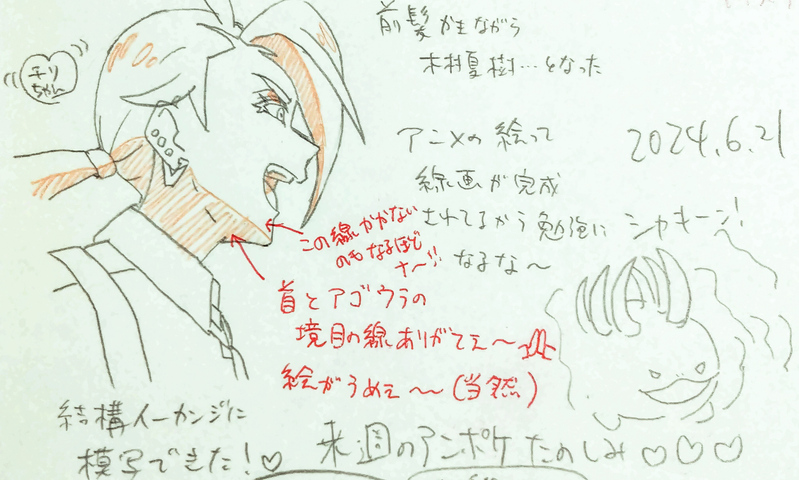 前髪かきながら
木村夏樹…となった
チリ
ちゃん
アニメの絵って
線画が完成
されてるから勉強に
なるな〜
2024.6.21
シャキーン!
この線かかない
のもなるほど
ナ〜!!
首とアゴウラの
境目の線ありがてえ〜
絵がうめえ〜(当然)
結構イーカンジに
模写できた!♡
来週のアンポケたのしみ♡♡♡